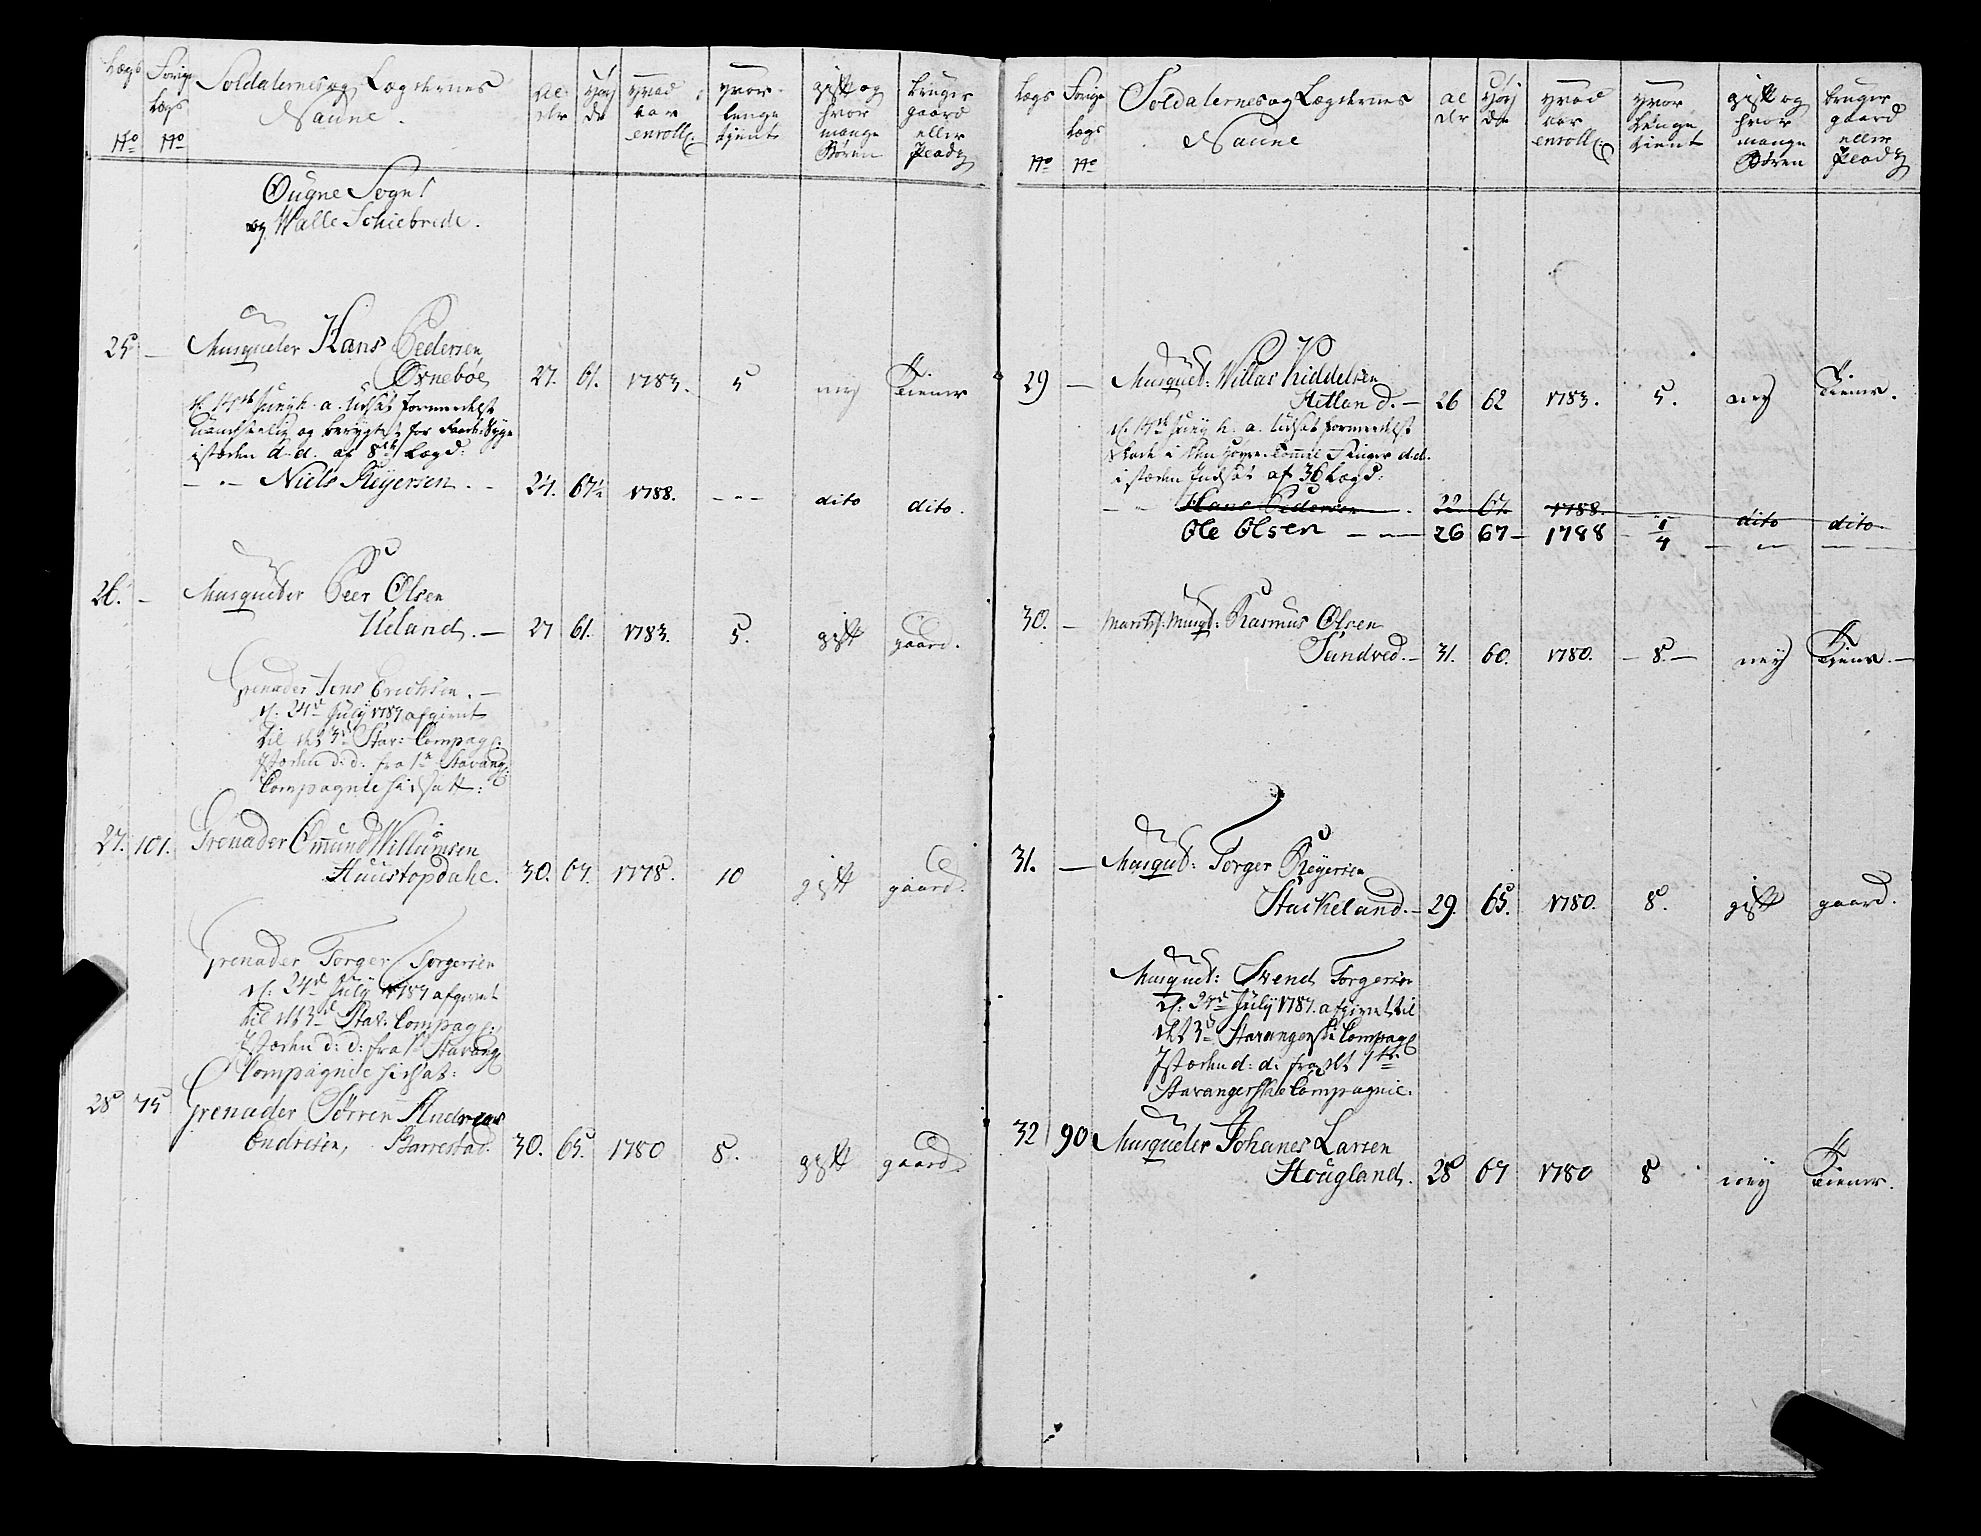 Lægs No | Forige Lægs No | Soldaternes og Lægdernes Naune. | Al- der | Høy de | Hvad aar enroll: | Hvor- lenge tient | gift og hvor mange Børen | bruger gaard eller Pladz
Ougne Sogn
og Walle Schiebrede.
25 — Musqueter Hans Pedersen
Ørneboe, 27. 61. 1783. 5 ney tiener
d. 17de Juny h. a. Udsat formedelst
og berygtet for
istæden d. d. af 8de Lægd:
— Niels Reyersen. 24. 67½ 1788. --- dito dito.
26. — Musqueter Peer Olsen
Ueland. — 27 61. 1783. 5. gift gaard.
Grenader Jens Erichsen. —
d. 24de July 1787 afgivet
til det 3de Stav: Compag:
Istæden d: d: fra 1te Stavang:
Compagnie hidsatt:
27. 101. Grenader Omund Willumsen
Haustopdahl. 30. 67. 1778. 10 gift gaard.
Grenader Torger Torgersen
d. 24de July 1787 afgivet
til det 3de Stav: Compag:
Istæden d: d: fra 1te Stavang:
Compagnie hidsat:
28 75 Grenader Sørren Andreas
Endresen, Barrestad. 30. 65. 1780 8. gift gaard.
Lægs No | Forige Lægs No | Soldaternes og Lægdernes Naune | Al der | Høy de | Hvad aar enroll: | Hvor lenge tient | gift og hvor mange Børen | bruger gaard eller Pladz
29 — Musquet: Villas Kiddelsen
Hetland. — 26 62 1783. 5. ney tiener.
d. 17de Juny h. a. Udsat formedelst
skade i den høyre Finger d. d.
i stæden Indsat af 36 Lægd:
— Hans Pedersen 22 67 1788. dito dito
Ole Olsen — 26 67 — 1788 — ¼ — — —
30. — Musqt: Rasmus Olsen
Sandved. — 31. 60. 1780. — 8. — ney tiener. —
31. — Musquet: Torger Reyersen
Stackeland. — 29. 65. 1780. 8. gift gaard.
Musquet: Svend Torgersen
d. 24de July 1787. afgivet til
det 3de Stavangerske Compag:
Istæden d: d: fra det 1te
Stavangerske Compagnie.
32 90 Musqueter Johanes Larsen
Hougland. 28 67 1780 8 ney tiener.